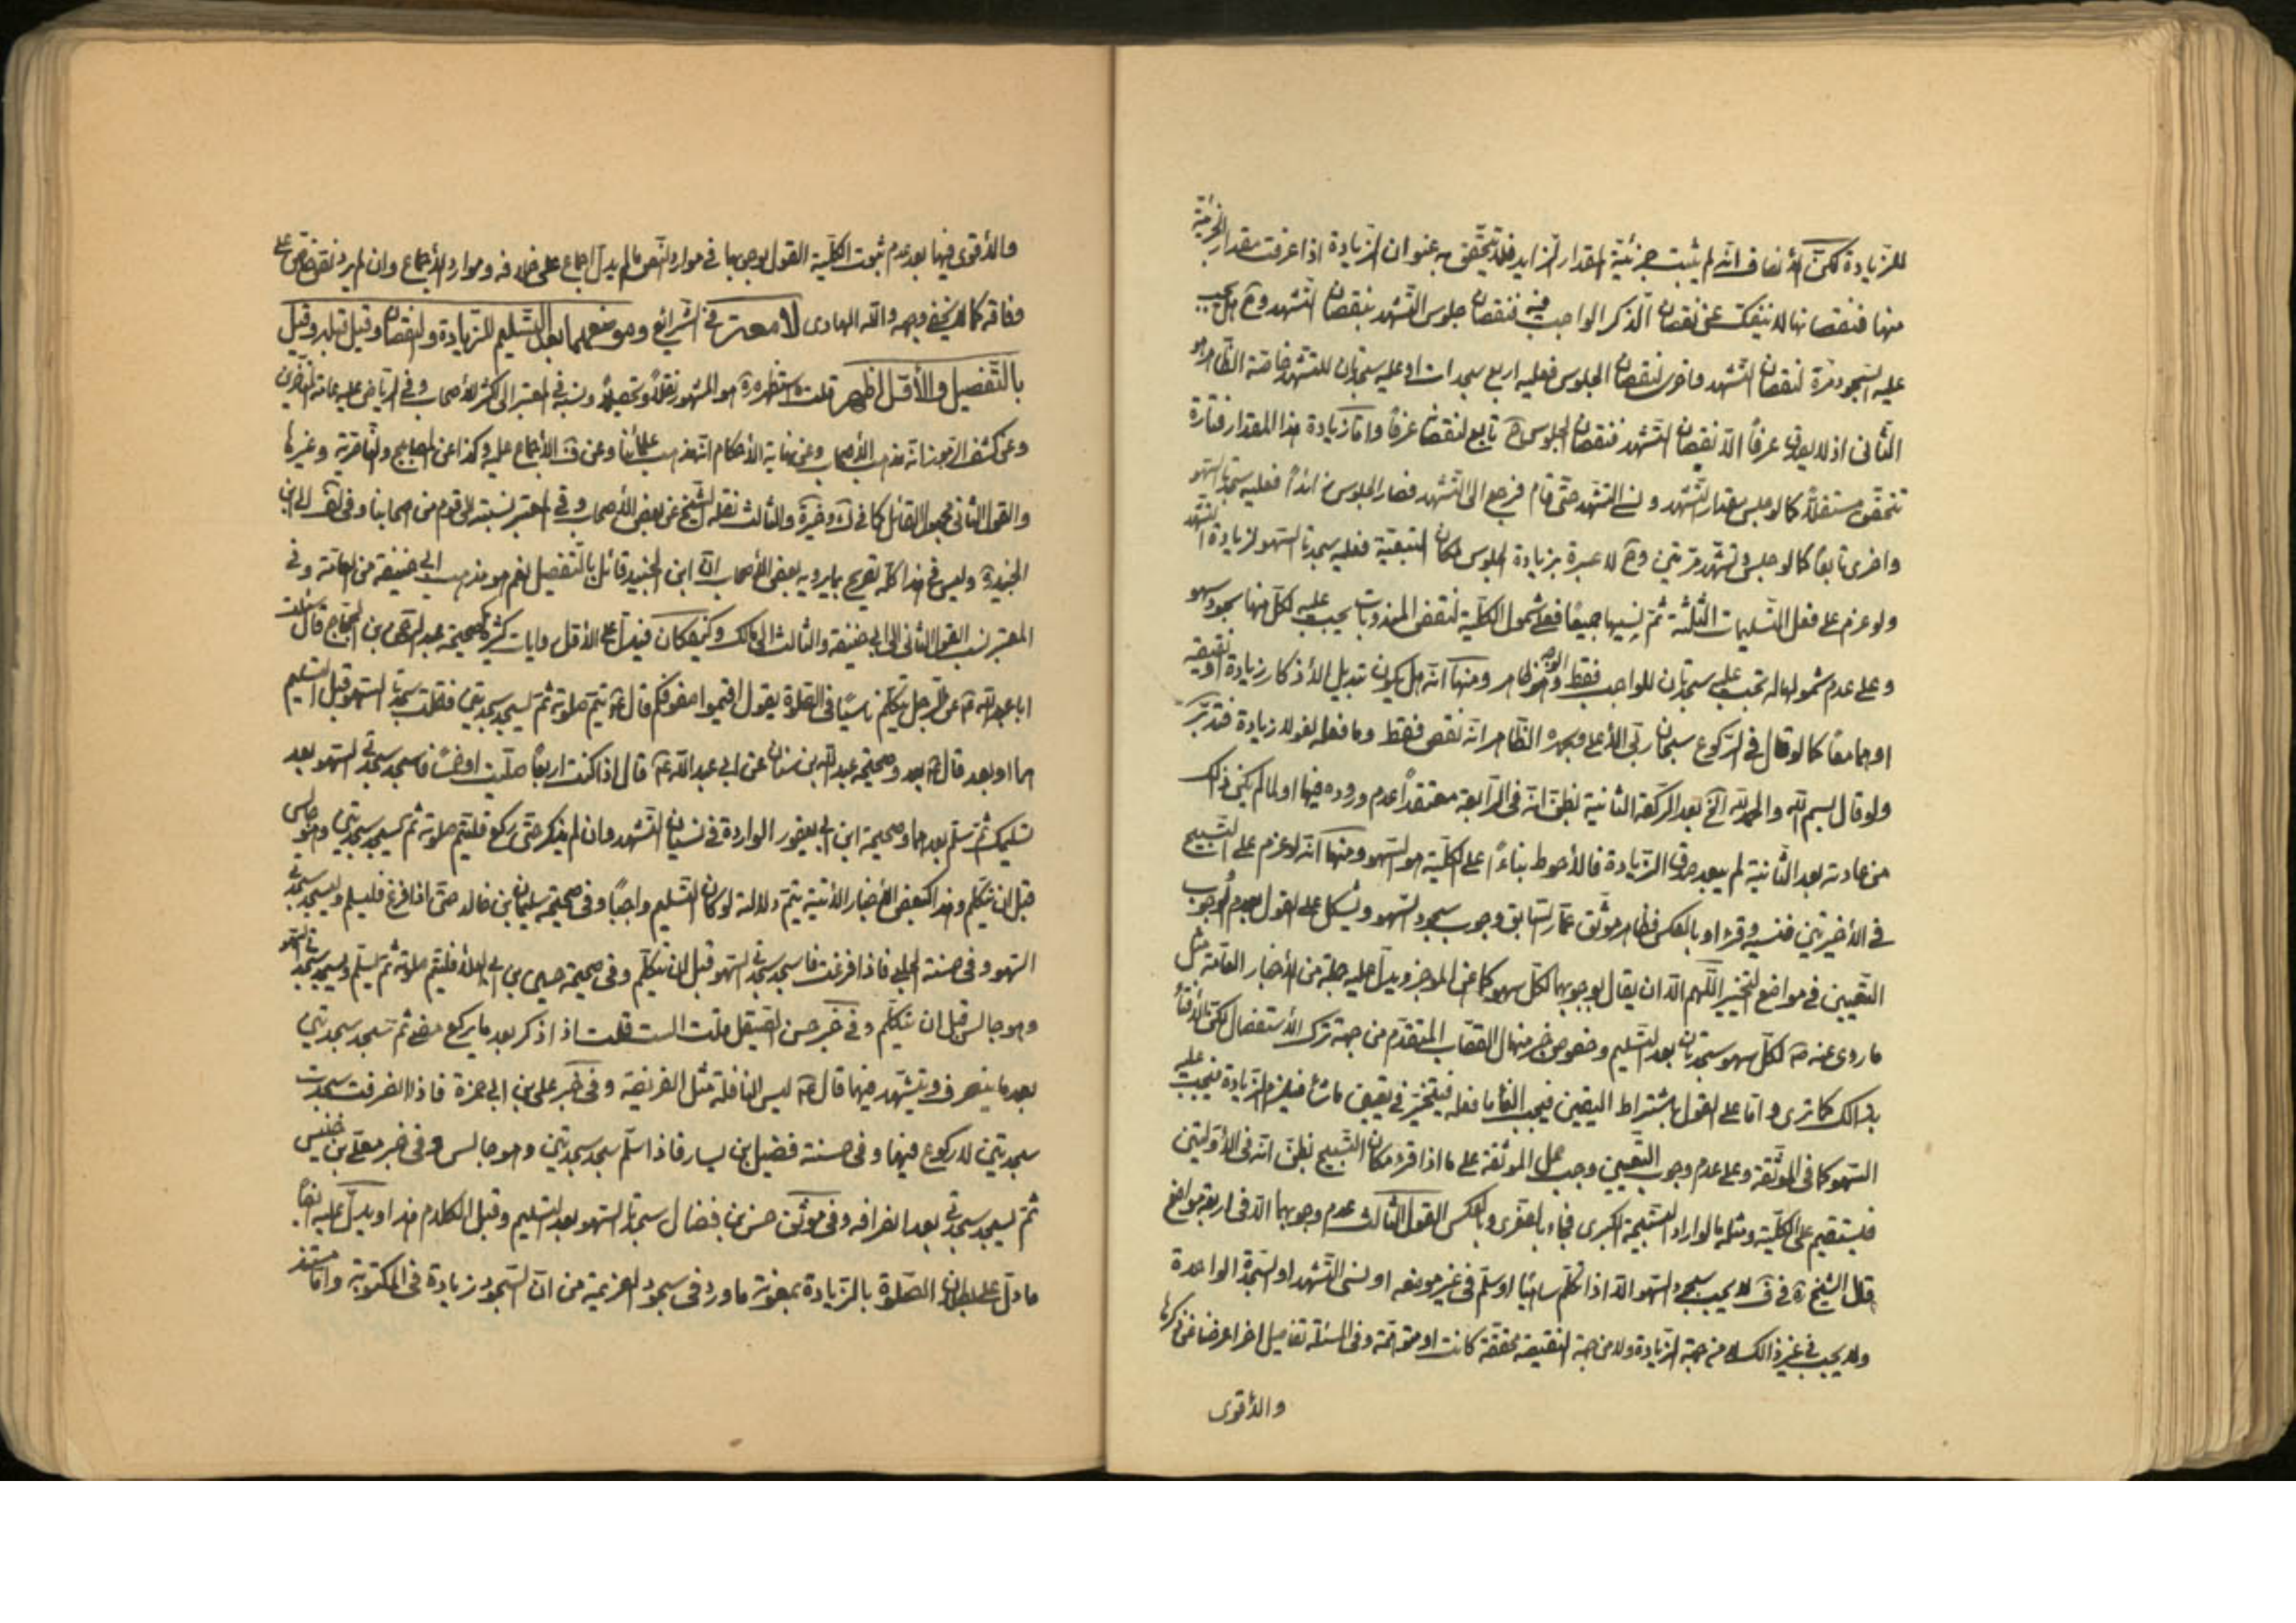 للزيادة لكن الأنصاف انه لم يثبت جزئية المقدار الزايد فلا يتحقق به عنوان الزيادة اذا عرفت مقدار الجزئية
منها فنقصانها لا ينفك عن نقصان الذكر الواجب فيه فنقصان جلوس التشهد بنقصان التشهد وح هل يجب
عليه السجود مرة لنقصان التشهد واخرى لنقصان الجلوس فعليه اربع سجدات او عليه سجدتان للتشهد خاصة الظاهر هو
الثانى اذ لا يعد عرفاً الا نقصان التشهد فنقصان الجلوس ح تابع لنقصانه عرفاً وامّا زيادة هذا المقدار فتارة
تتحقق مستقلاً كما لو جلس بمقدار التشهد ونسى التشهد حتى قام فرجع الى التشهد فصار الجلوس زائداً فعليه سجدتا السهو
واخرى تابعاً كما لو جلس وتشهد مرتين وح لا عبرة بزيادة الجلوس لمكان التبعية فعليه سجدتا السهو لزيادة التشهد
ولو عزم على فعل التسليمات الثلثة ثم نسيها جميعاً فعلى شمول الكلية لنقص المندوبات يجب عليه لكل منها سجود سهو
وعلى عدم شمولها له تجب عليه سجدتان للواجب فقط وهو ظاهر ومنها انه هل يكون تبديل الأذكار زيادة او نقيصة
او هما معا كما لو قال فى الركوع سبحان ربى الأعلى وبحمده الظاهر انه نقص فقط وما فعله لغو لا زيادة فتدبّر
ولو قال بسم الله والحمد لله الخ بعد الركعة الثانية بظن انه فى الرابعة معتقداً عدم وروده فيها او لما لم يكن ذلك
من عادته بعد الثانية لم يبعد صدق الزيادة فالأحوط بناءً على الكلية هو السهو ومنها انه لو عزم على التسبيح
فى الأخيرتين فنسيه وقرء او بالعكس فظاهر موثق عمار السابق وجوب سجود السهو ويشكل على القول بعدم وجوب
التعيين فى مواضع التخيير اللهم الا ان يقال بوجوبها لكل سهو كما عن الموجز ويدل عليه جملة من الأخبار العامة مثل
ما روى عنه ص لكل سهو سجدتان بعد التسليم وخصوص خبر منهال القصاب المتقدم من جهة ترك الأستفصال لكن الأفتاء
بذالك كما ترى وامّا على القول باشتراط التعيين فيجب الغاء ما فعله فيتخير فى تعيين ما شاء فيلزم الزيادة فيجب عليه
السهو كما فى الموثقة وعلى عدم وجوب التعيين وجب حمل الموثقة على ما اذا قرء مكان التسبيح بظن انه فى الأوليتين
فليستقيم على الكلية ومثله ما لو اراد التسبيحة الكبرى فجاء بالصغرى وبالعكس القول الثالث عدم وجوبهما الا فى اربعة مواضع
قال الشيخ ره فى ف لا يجب سجدتا السهو الا اذا تكلم ساهيًا او سلم فى غير موضعه او نسى التشهد او السجدة الواحدة
ولا يجب فى غير ذالك لا من جهة الزيادة ولا من جهة النقيصة محققة كانت او متوهمة وفى المسئلة تفاصيل اخر اعرضنا عن ذكرها
والأقوى
والأقوى فيها بعد عدم ثبوت الكلية القول بوجوبها فى موارد النص ما لم يدل اجماع على خلافه وموارد الأجماع وان لم يرد نص خاص على
وفاقه كما لا يخفى وجهه والله الهادى لا معة فى الشرائع وموضعهما بعد التسليم للزيادة والنقصان وقيل قبله وقيل
بالتفصيل والأول اظهر قلت ما استظهره هو المشهور نقلاً وتحصيلاً ونسبه فى المعتبر الى اكثر الأصحاب وفى الرياض عليه عامة المتأخرين
وعن كشف الرموز انه مذهب الأصحاب وعن نهاية الأحكام انه مذهب علمائنا وعن ف الأجماع عليه وكذا عن المصابيح والناصرية وغيرها
والقول الثانى مجهول القائل كما فى ك وذخيرة والثالث نقله الشيخ عن بعض الأصحاب وفى المعتبر نسبته الى قوم من اصحابنا وفى لف الى ابن
الجنيد ره وليس فى هذا كله تصريح بما يرويه بعض الأصحاب الا ان ابن الجنيد قائل بالتفصيل نعم هو مذهب ابى حنيفة من العامة وفى
المعتبر نسب القول الثانى الى ابى حنيفة والثالث الى مالك وكيفكان فيدل على الأول روايات كثيرة كصحيحة عبد الرحمن بن الحجاج قال سئلت
ابا عبد الله ع عن رجل يتكلم ناسيًا فى الصلوة يقول اقيموا صفوفكم قال ع يتم صلوته ثم يسجد سجدتين فقلت سجدتا السهو قبل التسليم
هما او بعد قال ع بعد وصحيحة عبد الله بن سنان عن ابى عبد الله ع قال اذا كنت اربعاً صليت او خمسًا فاسجد سجدتى السهو بعد
تسليمك ثم سلم بعدهما وصحيحة ابن ابى يعفور الواردة فى نسيان التشهد وان لم يذكر حتى ركع فليتم صلوته ثم يسجد سجدتين وهو جالس
قبل ان يتكلم وهذا كبعض الأخبار الأتية يتم دلالته لو كان التسليم واجباً وفى صحيحة سليمان بن خالد حتى اذا فرغ فليسلم وليسجد سجدتى
السهو وفى حسنة الحلبى فاذا فرغت فاسجد سجدتى السهو قبل ان تتكلم وفى صحيحة حسين بن ابى العلاء فليتم صلوته ثم يسلم ويسجد سجدتى السهو
وهو جالس قبل ان يتكلم وفى خبر حسن الصيقل قلت اليس قلت اذا ذكر بعد ما يركع مضى ثم تسجد سجدتين
بعد ما ينصرف ويتشهد فيهما قال ع ليس النافلة مثل الفريضة وفى خبر على بن ابى حمزة فاذا انصرفت سجدت
سجدتين لا ركوع فيهما وفى حسنة فضيل بن يسار فاذا سلم سجد سجدتين وهو جالس وفى خبر معلى بن خنيس
ثم يسجد سجدتى بعد انصرافه وفى موثق حسن بن فضال سجدتا السهو بعد التسليم وقبل الكلام هذا ويدل عليه ايضًا
ما دل على بطلان الصلوة بالزيادة بمعونة ما ورد فى سجود العزيمة من ان السجود زيادة فى المكتوبة وامّا مستند